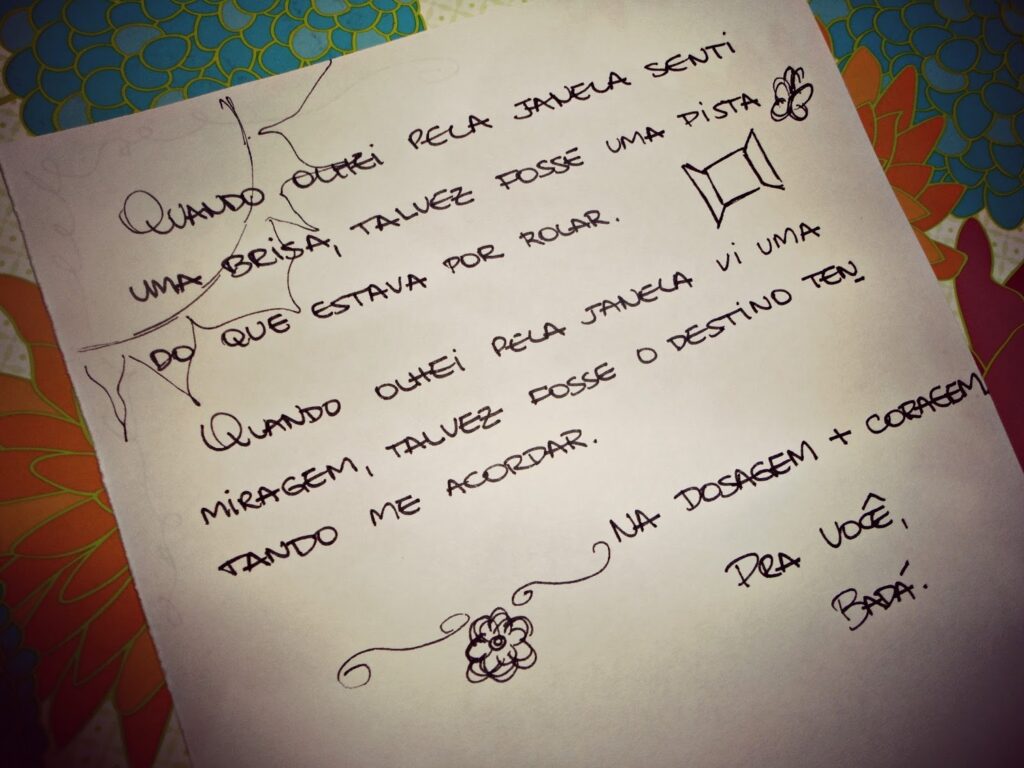 QUANDO OLHEI PELA JANELA SENTI
UMA BRISA, TALVEZ FOSSE UMA PISTA
DO QUE ESTAVA POR ROLAR.
QUANDO OLHEI PELA JANELA VI UMA
MIRAGEM, TALVEZ FOSSE O DESTINO TEN
TANDO ME ACORDAR.
NA DOSAGEM + CORAGEM
PRA VOCÊ,
BADÁ.